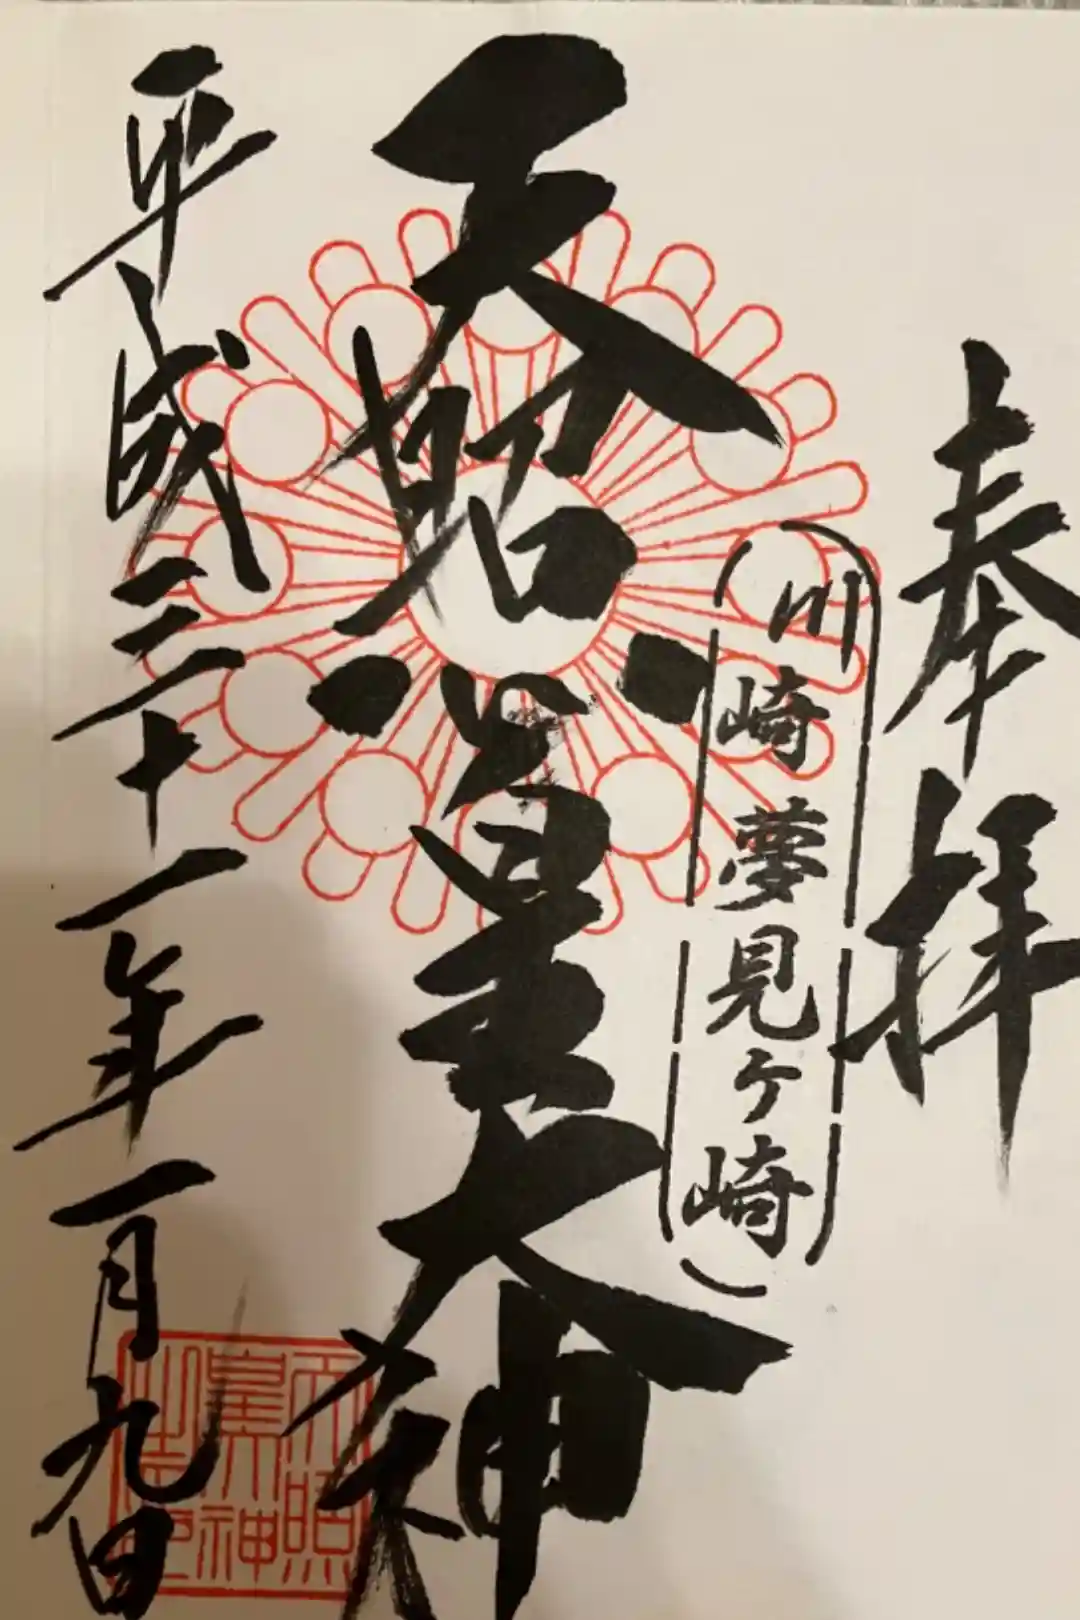 奉拝
(川崎夢見ヶ崎)
天照皇大神
平成三十一年一月九日
天照
皇大神